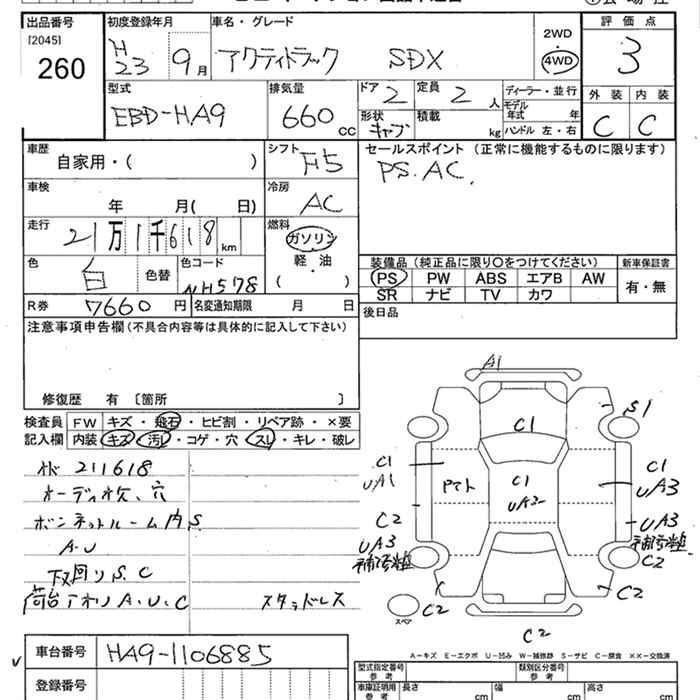 出品番号
[2045]
260
初度登録年月
H23 9月
車名・グレード
アクティトラック SDX
2WD
4WD
評価点
3
型式
EBD-HA9
排気量
660 cc
ドア 2
定員 2 人
形状 キャブ
積載 kg
ディーラー・並行
モデル年式 年
ハンドル 左・右
外装 内装
C C
車歴
自家用・( )
シフト F5
セールスポイント (正常に機能するものに限ります)
PS. AC.
車検
年 月( 日)
冷房
AC
走行
21万1千618 km
燃料
ガソリン
軽・油
( )
色
白
色替
色コード
NH578
装備品 (純正品に限り〇をつけてください)
新車保証書
PS PW ABS エアB AW
有・無
SR ナビ TV カワ
R券 7660 円
名変通知期限 月 日
後日品
注意事項申告欄 (不具合内容等は具体的に記入して下さい)
修復歴 有 〔箇所 〕
検査員
記入欄
FW キズ・飛石・ヒビ割・リペア跡・×要
内装 キズ・汚レ・コゲ・穴・スレ・キレ・破レ
211618
オーディオ欠、穴
ボンネットルーム内 S
A.U
下回り S.C
荷台アオリ A.U.C
スタッドレス
A1
C1
S1
C1
UA1
アマト
C1
UA3
C1
UA3
C2
UA3
UA3
C2
C2
スペア
C2
C2
A-キズ E-エクボ U-凹み W-補修跡 S-サビ C-腐食 XX-交換済
車台番号
HA9-1106885
登録番号
型式指定番号
参考
類別区分番号
参考
車庫証明用
参考
長さ cm
幅 cm
高さ cm